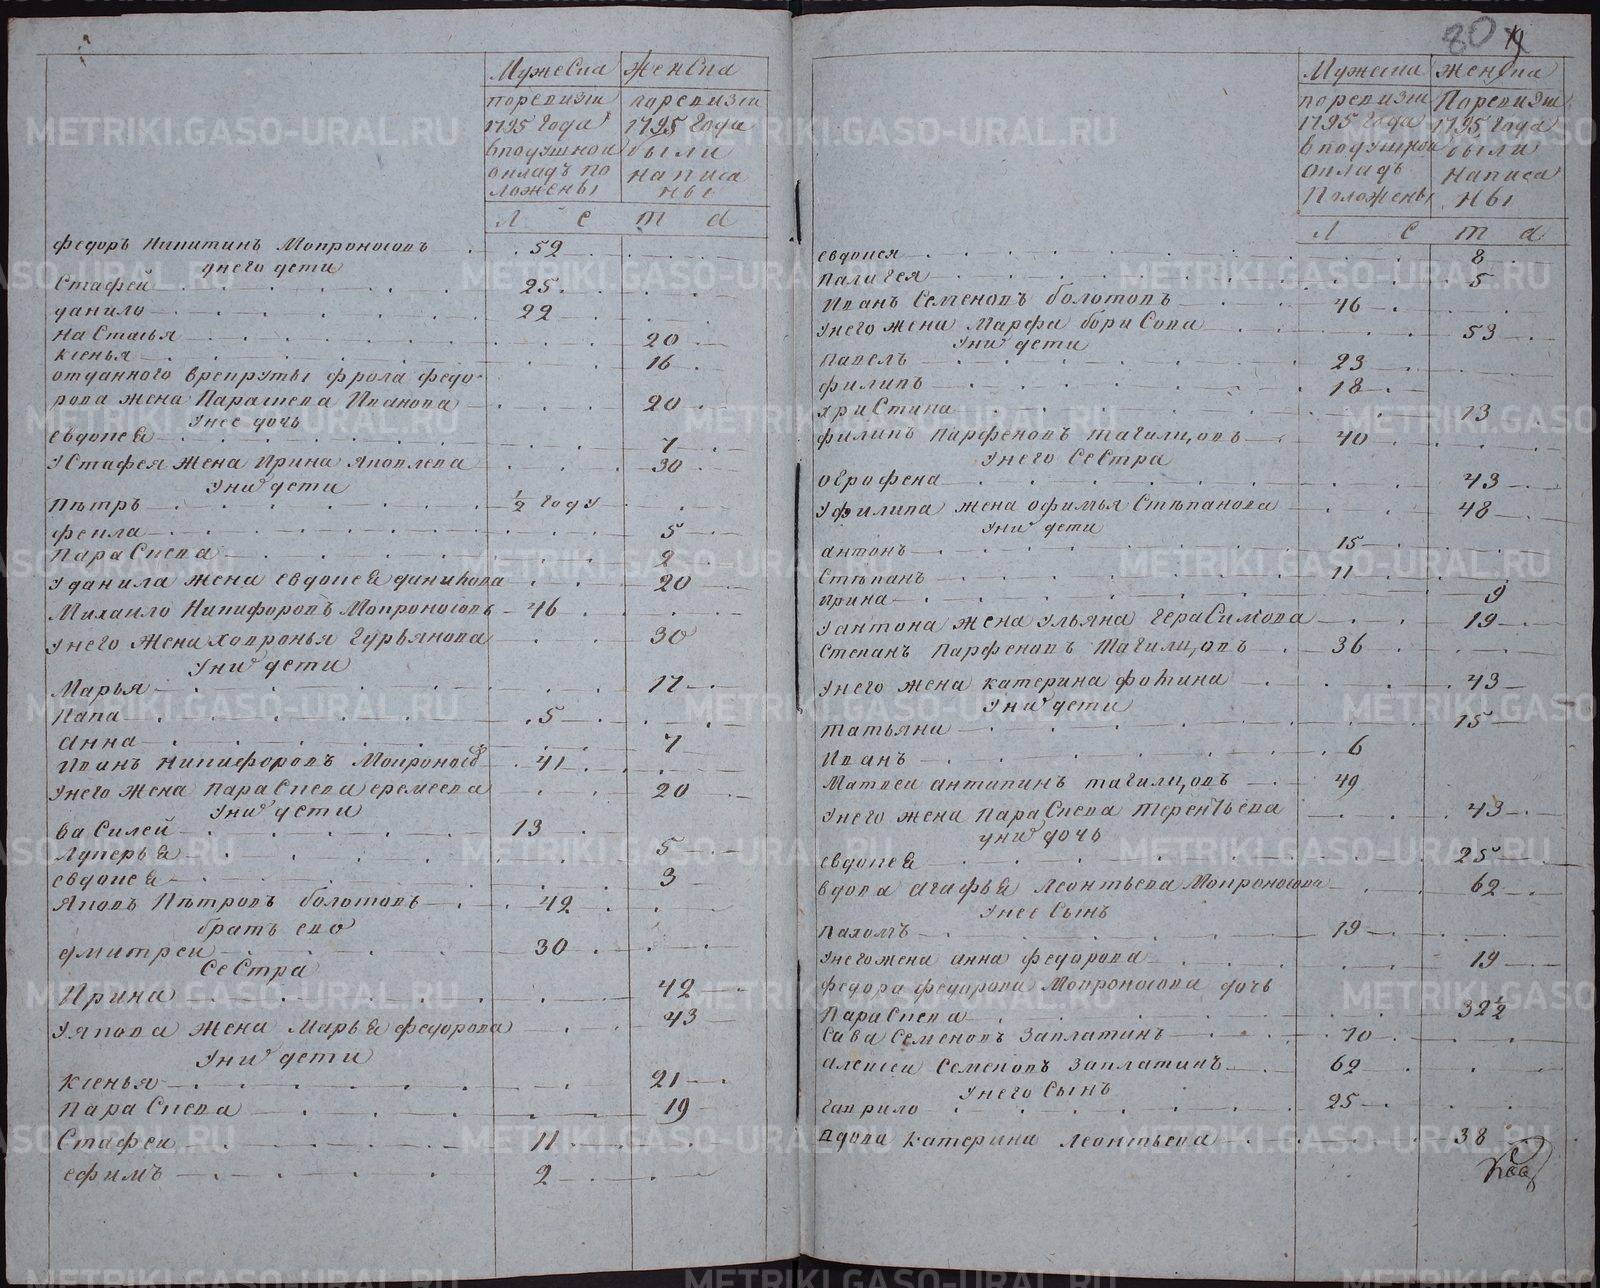 Мужеска Женска
поревизии поревизии
1795 года 1795 года
вподушной были
окладъ по написа
ложены ны
Л е т а
федоръ Никитинъ Мокроносовъ 52
унего дети
Стафей 25
данило 22
настасья 20
ксенья 16
отданного врекруты фрола федо-
рова жена Параскева Иванова 20
Унее дочь
евдокея 1
уСтафея Жена Ирина Яковлева 30
Уних дети
Пѣтръ 1/2 году
фекла 5
параскева 2
Уданила жена евдокея данилова 20
Михаило Никифоровъ Мокроносовъ 46
унего Жена ховронья Гурьянова 30
Уних дети
Марья 17
Кака 5
анна 7
Иванъ Никифоровъ Мокроносов 41
Унего жена параскева еремеева 20
Уних дети
василей 13
лукерья 5
евдокея 3
Яковъ Пѣтровъ болотовъ 42
братъ ево
дмитреи 30
сестра
Ирина 42
Уякова Жена Марья федорова 43
Уних дети
ксенья 21
параскева 19
Стафеи 11
ефимъ 2
80
19
Мужеска женска
поревизии Поревизии
1795 года 1795 года
вподушной были
окладъ написа
Положены ны
Л е т а
евдокея 8
палагея 5
Иванъ Семеновъ болотовъ 46
Унего жена Марфа борисова 53
Уних дети
павелъ 23
филипъ 18
христина 13
филипъ Парфеновъ тагилцовъ 40
Унего Сестра
оврофена 43
Уфилипа жена офимья Стѣпанова 48
Уних дети
антонъ 15
Стѣпанъ 11
ирина 9
Уантона жена Ульяна герасимова 19
Степанъ Парфеновъ тагилцовъ 36
Унего жена катерина фокина 43
Уних дети
татьяна 15
Иванъ 6
Матвеи антипинъ тагилцовъ 49
Унего жена параскева терентьева 43
уних дочь
евдокея 25
вдова агафья леонтьева Мокроносова 62
Унее Сынъ
пахомъ 19
Унегожена анна федорова 19
федора федорова Мокроносова дочь
параскева 32 1/2
Сава Семеновъ Заплатинъ 70
алексеи Семеновъ Заплатинъ 62
Унего Сынъ
гаврило 25
вдова катерина леонтьева 38